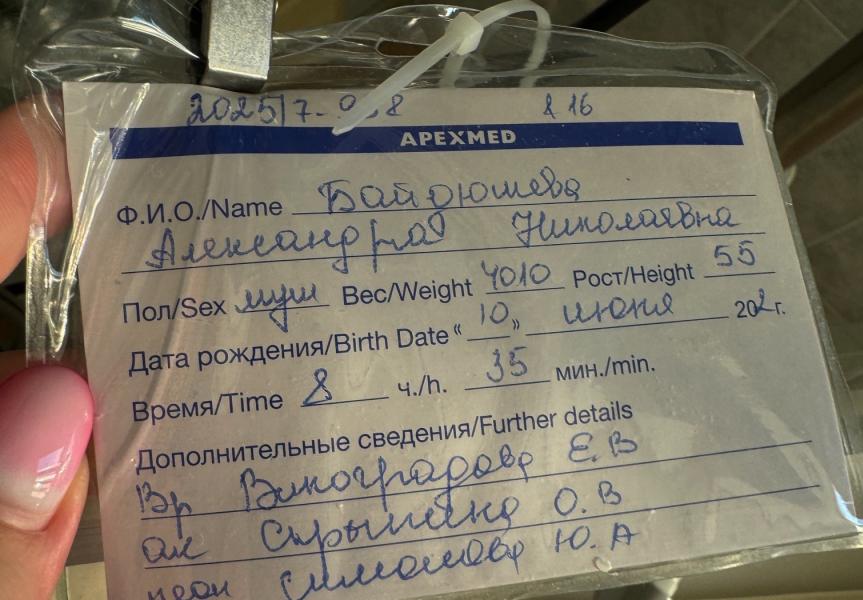 2025/7- 8 & 16
APEXMED
Ф.И.О./Name Байдюшева
Александра Николаевна
Пол/Sex муж Вес/Weight 4010 Рост/Height 55
Дата рождения/Birth Date “ 10 „ июня 202 г.
Время/Time 8 ч./h. 35 мин./min.
Дополнительные сведения/Further details
Вр Виноградова Е.В
ак О.В
неон Симонова Ю.А